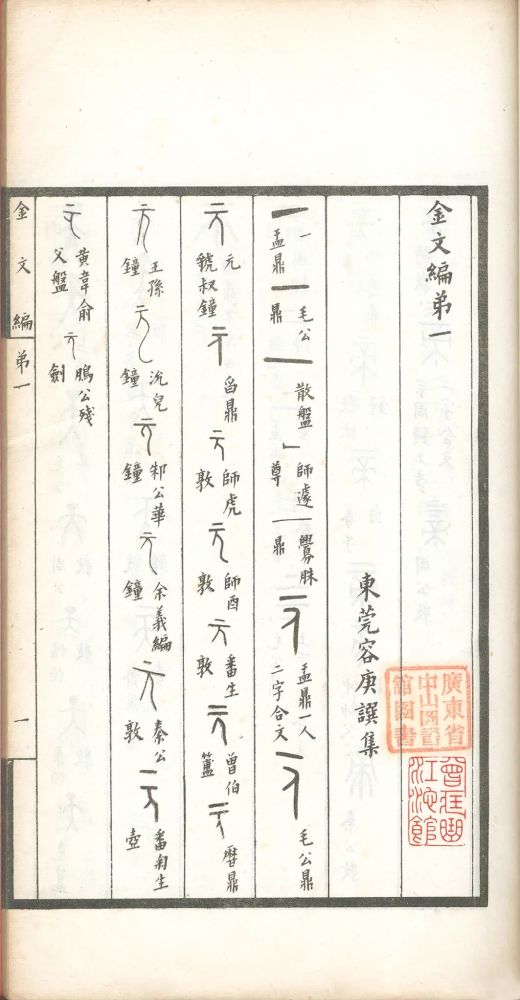 金文編弟一
東莞容庚譔集
一 盂鼎 毛公鼎 散盤 師遽尊 鼎 盂鼎一人二字合文 毛公鼎
元 虢叔鐘 曶鼎 師虎敦 師酉敦 番生敦 曾伯簠 曆鼎
王孫鐘 沇兒鐘 邾公華鐘 余義編鐘 秦公敦 番匊生壺
黃韋俞父盤 鵙公殘劍
金文編 弟一 一
廣東省中山圖書館圖書